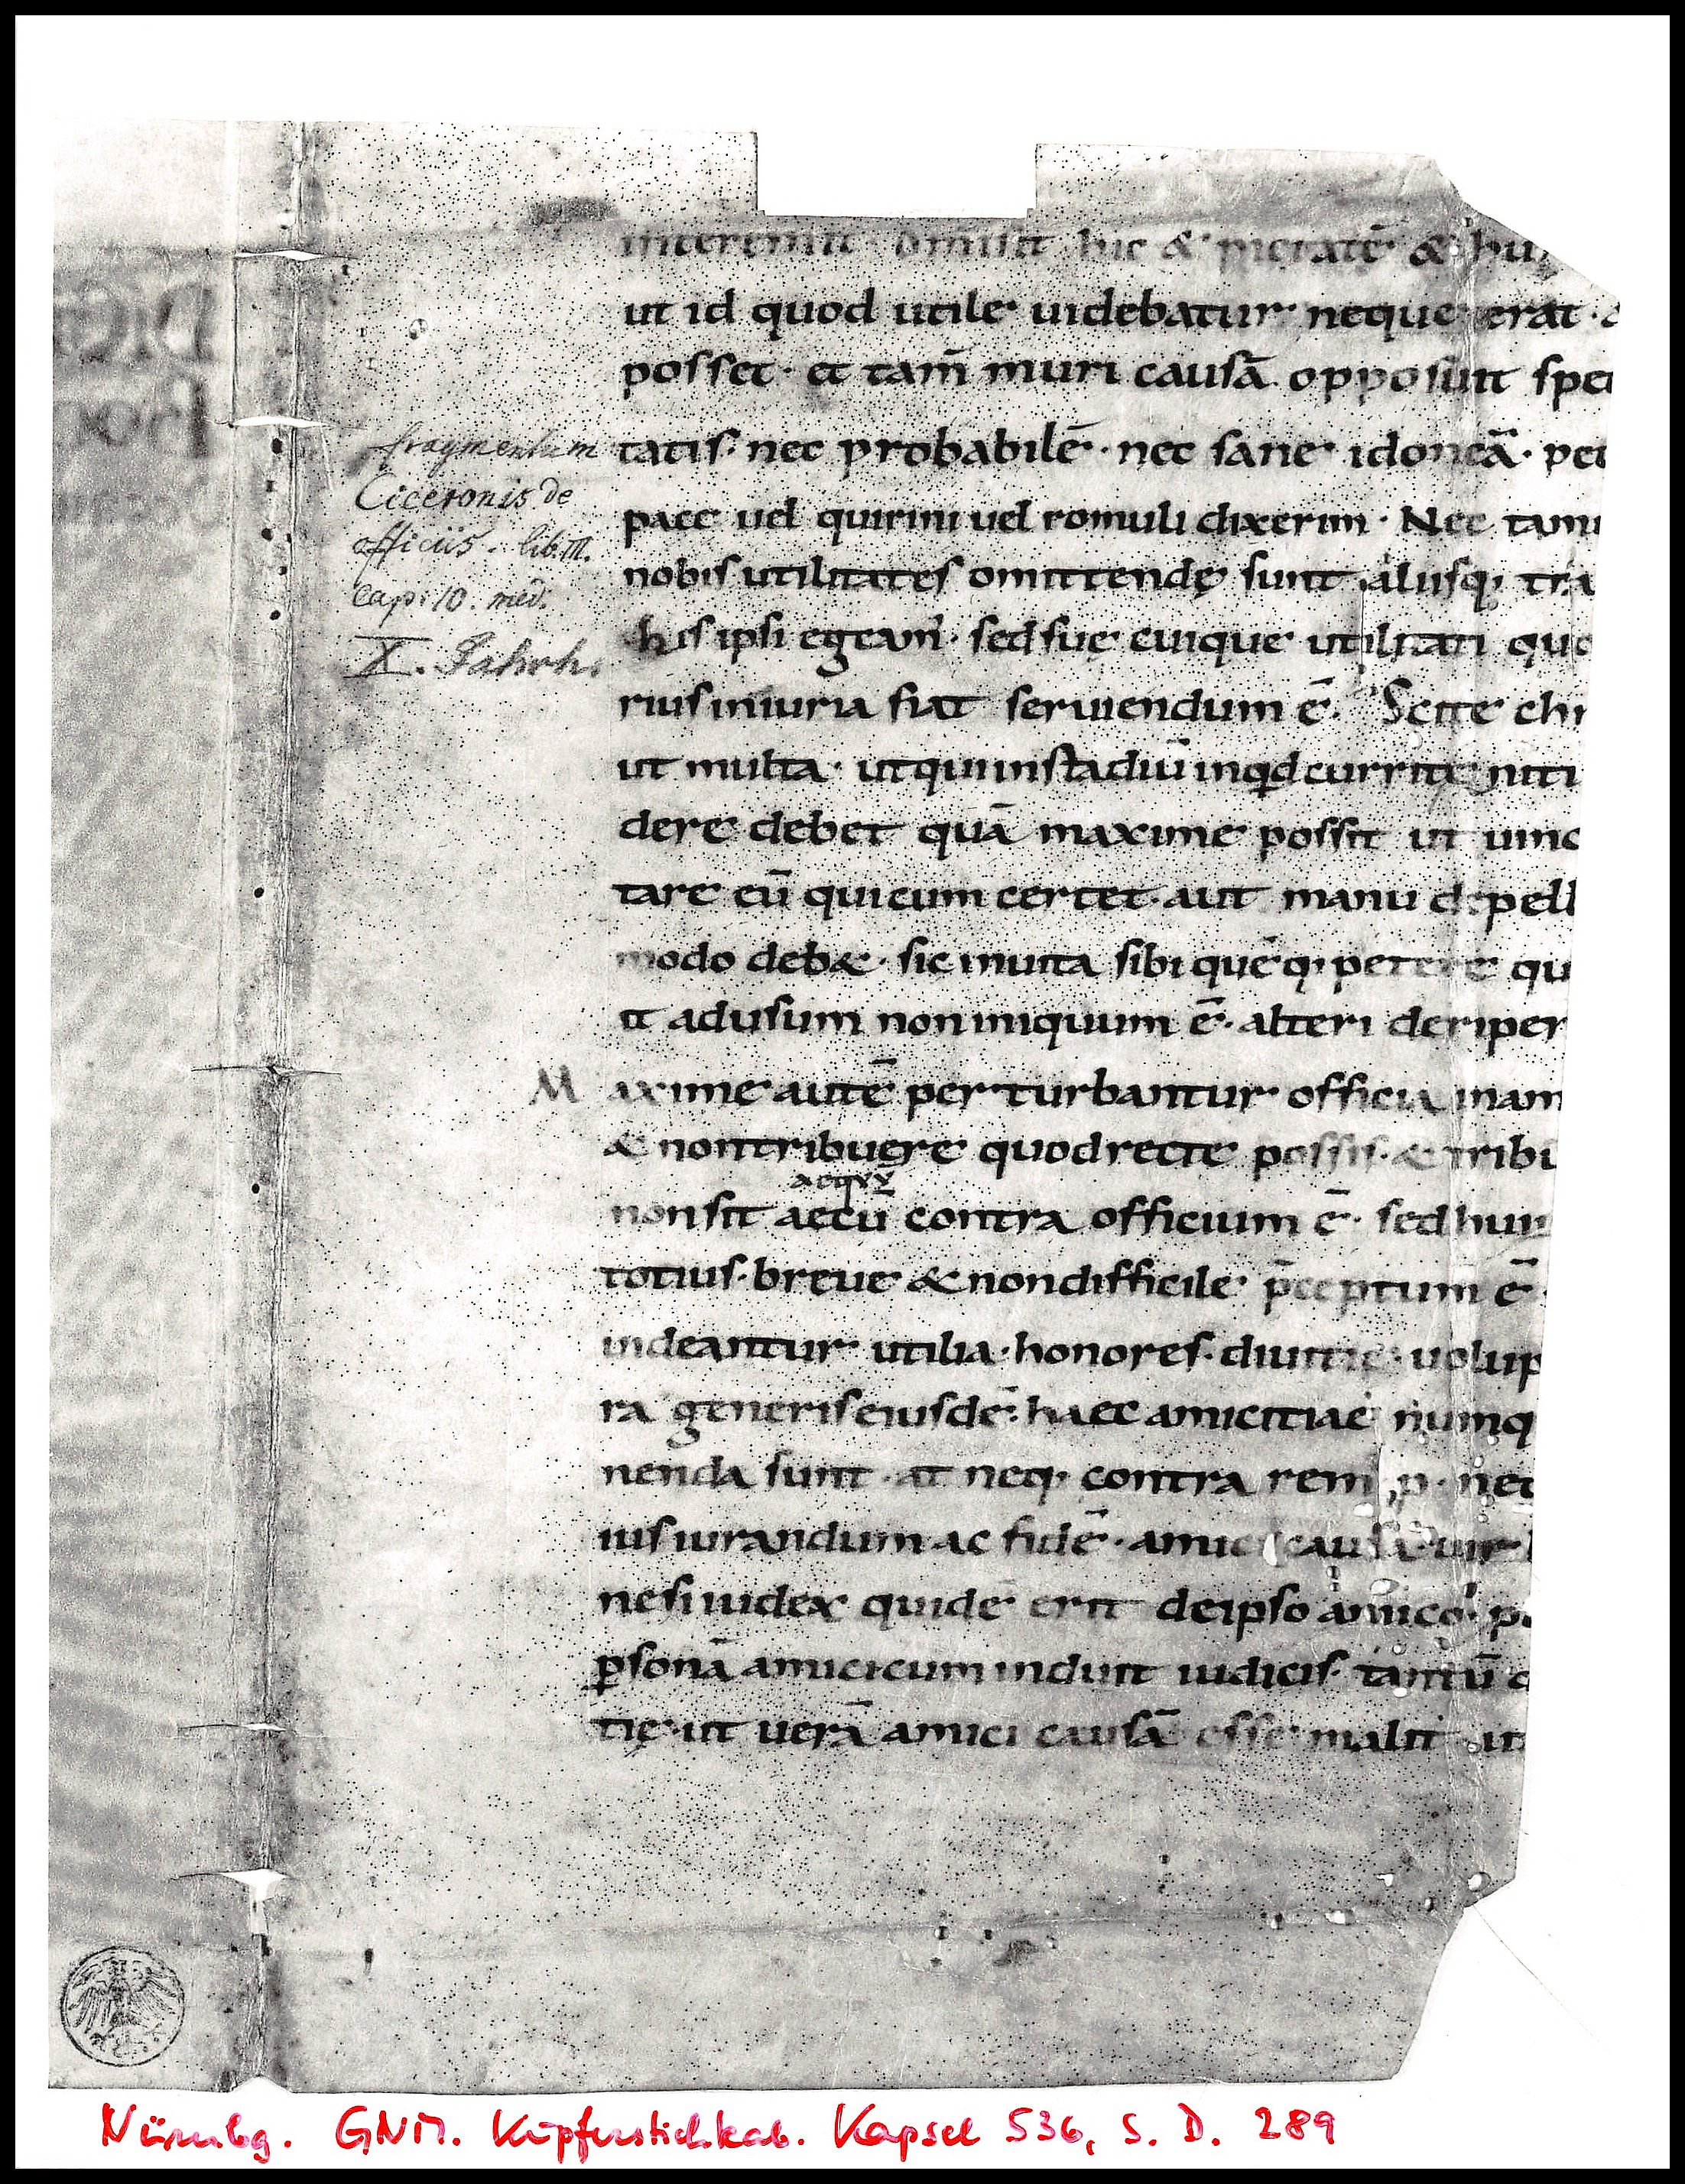 fragmentum
Ciceronis de
officiis. lib. III.
Cap. 10. med.
X. Jahrh.
interemit omisit hic & pietatē & hu
ut id quod utile uidebatur neque erat ·
posset · et tam̄ muri causā opposuit spe
tatis · nec probabilē · nec sane idoneā · pec
pace uel quirini uel romuli dixerim · Nec tam
nobis utilitates omittendę sunt aliisq; tra
his ipsi egeam̄ · sed suę cuique utilitati quo
rius iniuria fiat seruiendum ē · Scite chr
ut multa · ut qui in stadiū inqd currit niti
dere debet quā maxime possit ut uinc
tare eū qui cum certet · aut manu depell
modo deb& · sic in uita sibi quēq; petere qu
it ad usum non iniquum ē · alteri deriper
M axime autē perturbantur officia in am
& non tribuere quod recte possis · & tribu
aequū
non sit aecū contra officium ē · sed huiꝰ
totius · breue & non difficile p̄ceptum ē ·
uideantur utilia · honores · diuitię · uolup
ra generis eiusdē · haec amicitiae numq
nenda sunt · at neq; contra rem · p · nec
ius iurandum ac fidē · amici causa uir
ne si iudex quidē erit de ipso amico · po
ꝑsonā amici cum induit iudicis · tantū d
tię · ut uerā amici causā esse malit ut
Nürnbg. GNM. Kupferstichkab. Kapsel 536, S. D. 289